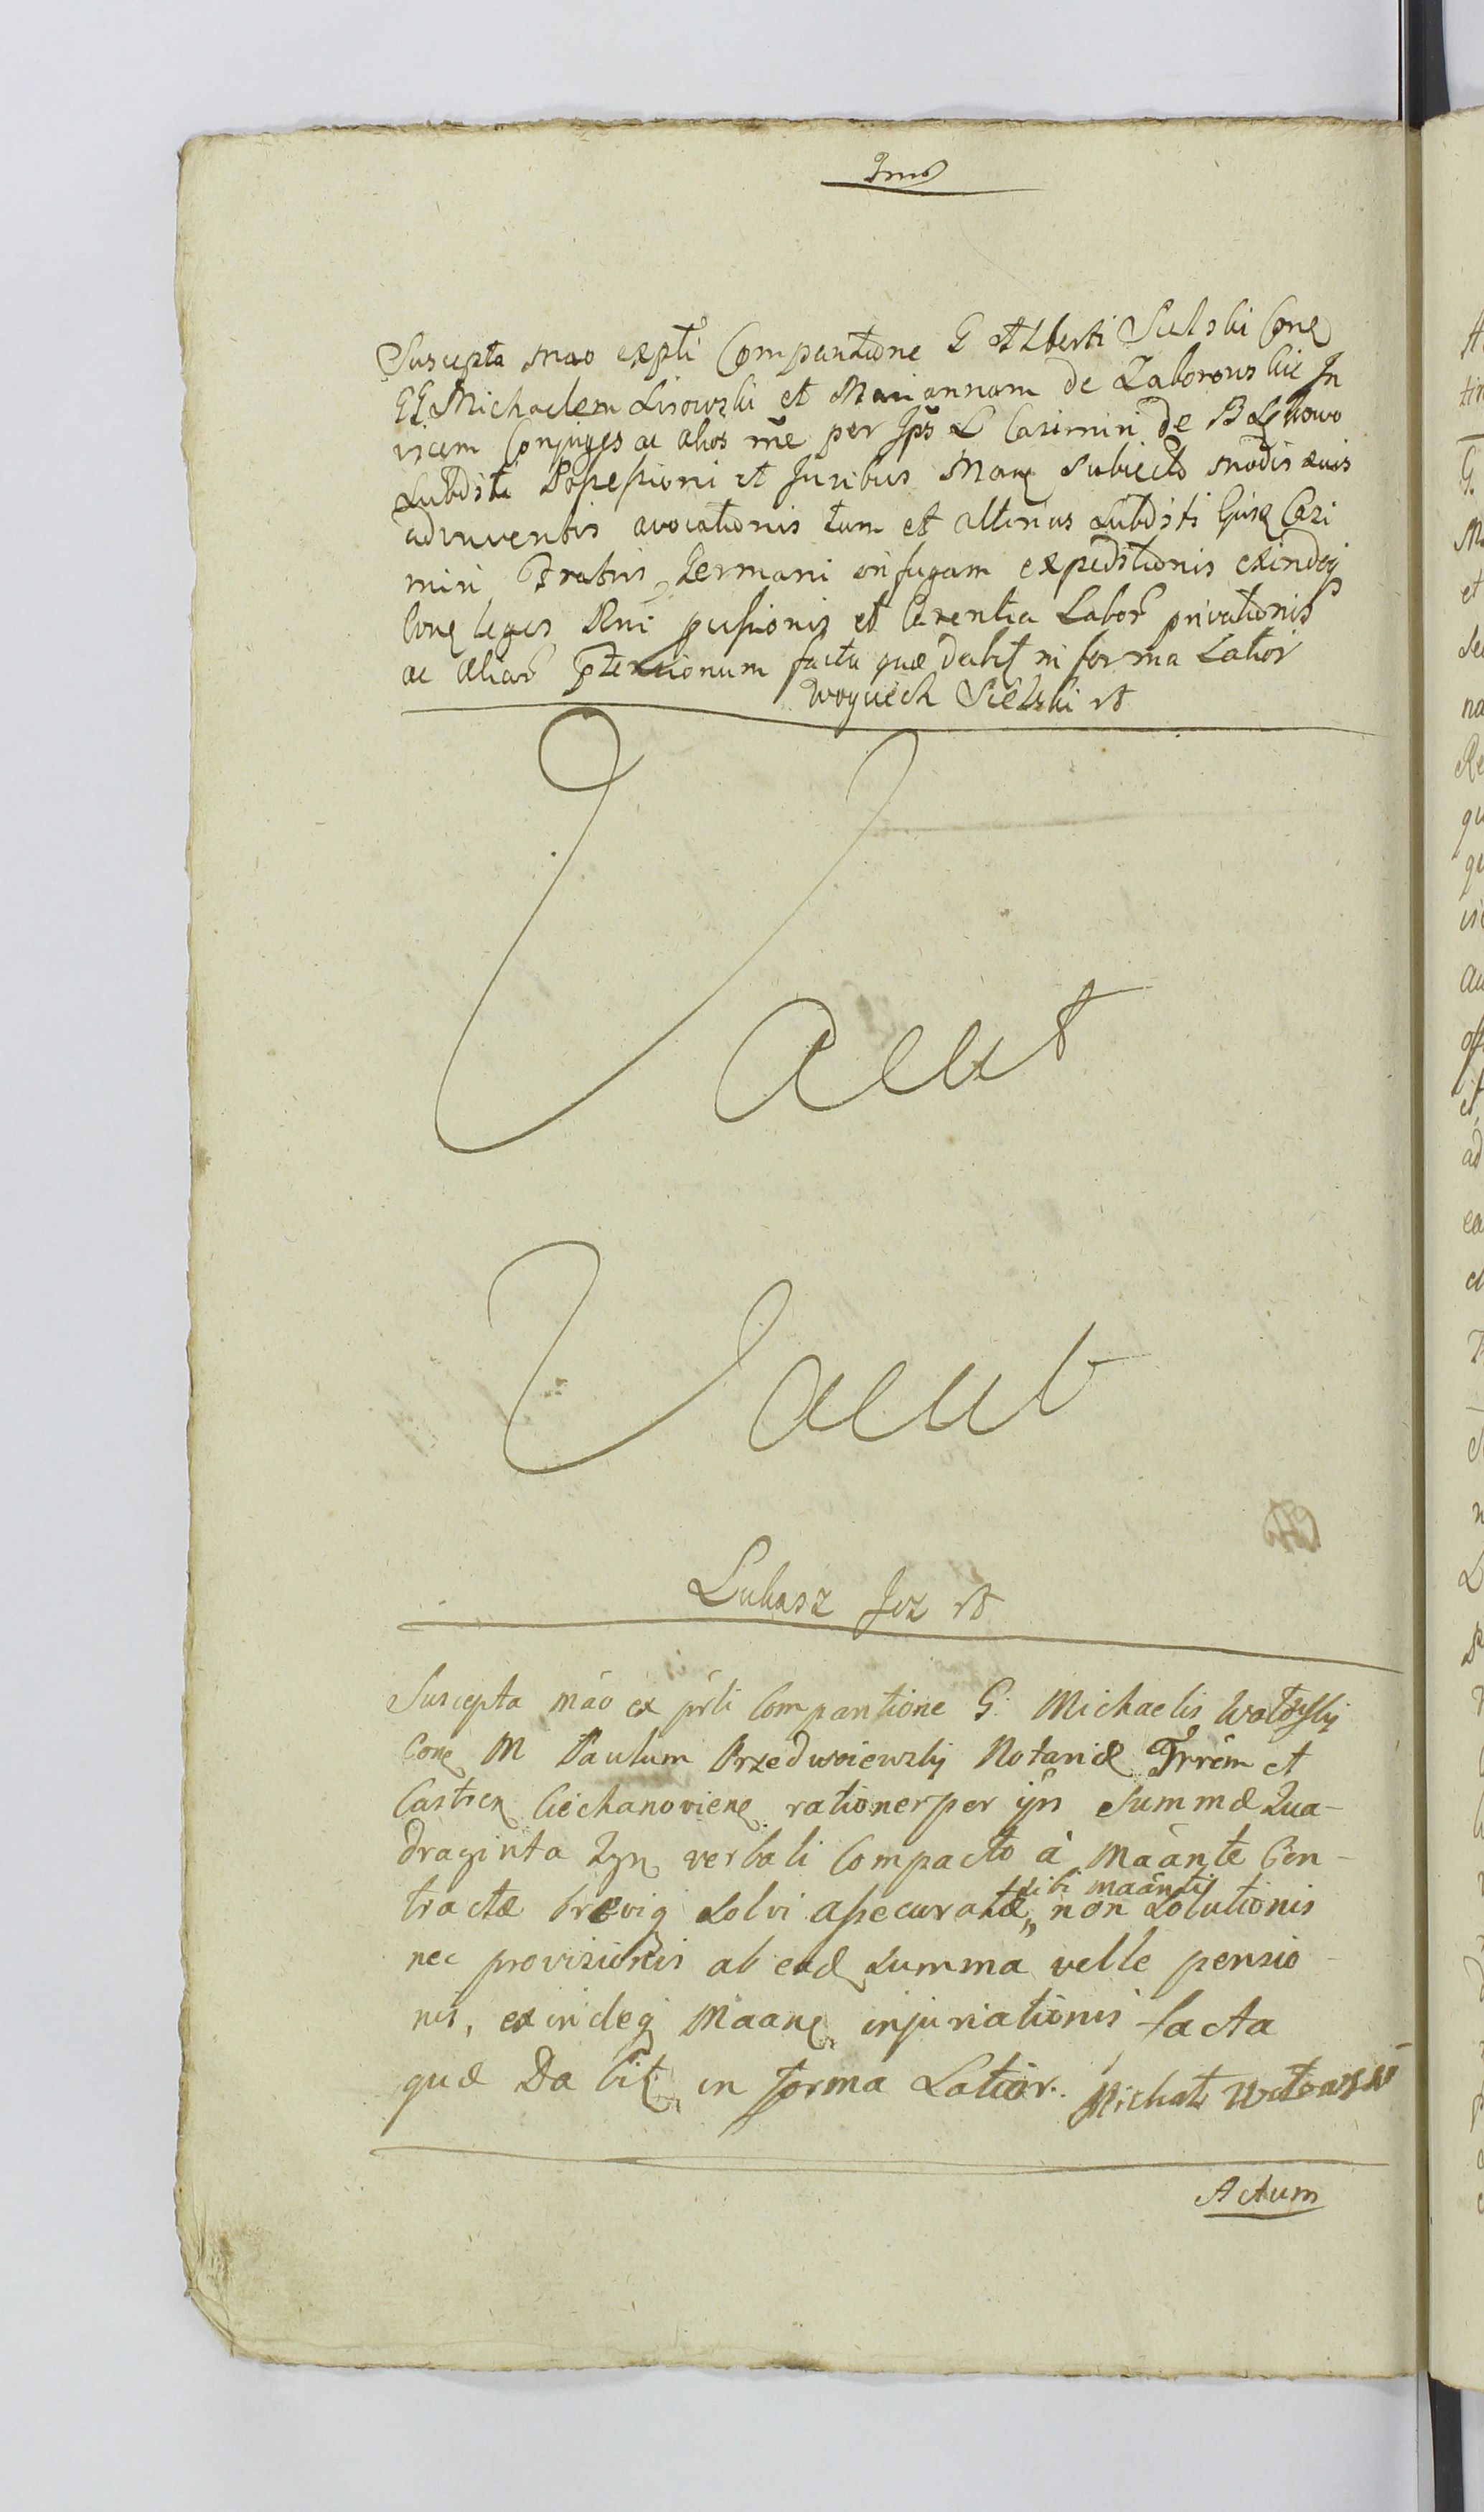 Suscepta mão expti Compantione G Alberti Sielski Cone
GG Michaelem Lisowski et Mariannam de Zaborowskie In
vicem Conjuges ac alios mẽ per Ips L Casimiri de
Subditi Possessioni et Juribus Mane Subiecto modis suis
adinventis avocationis tum et alterius Subditi Ejusq Casi
miri Fratris Germani in fugam expeditionis exindeq
Cone leges Rni pussionis et Carentia Labor privationis
ac aliar Ptensionum facta quæ dabit in forma Latior
Woyciech Sielski
Vacat
Vacat
Lukasz
Suscepta mão ex pŕti Compantione G. Michaelis
Cone M Paulum Przedwoiewski Notariæ Trrẽm et
Castren Ciechanoviene rationer per ips Summæ Qua-
draginta verbali Compacto à Maante Con-
tractæ brevig Solvi assecuratæ „ sibi maanti non Solutionis
nec provisionis ab ead summa velle pensio
nis, exindeq Maane injuriationis facta
quæ Dabit in forma Latior. Michał
Actum